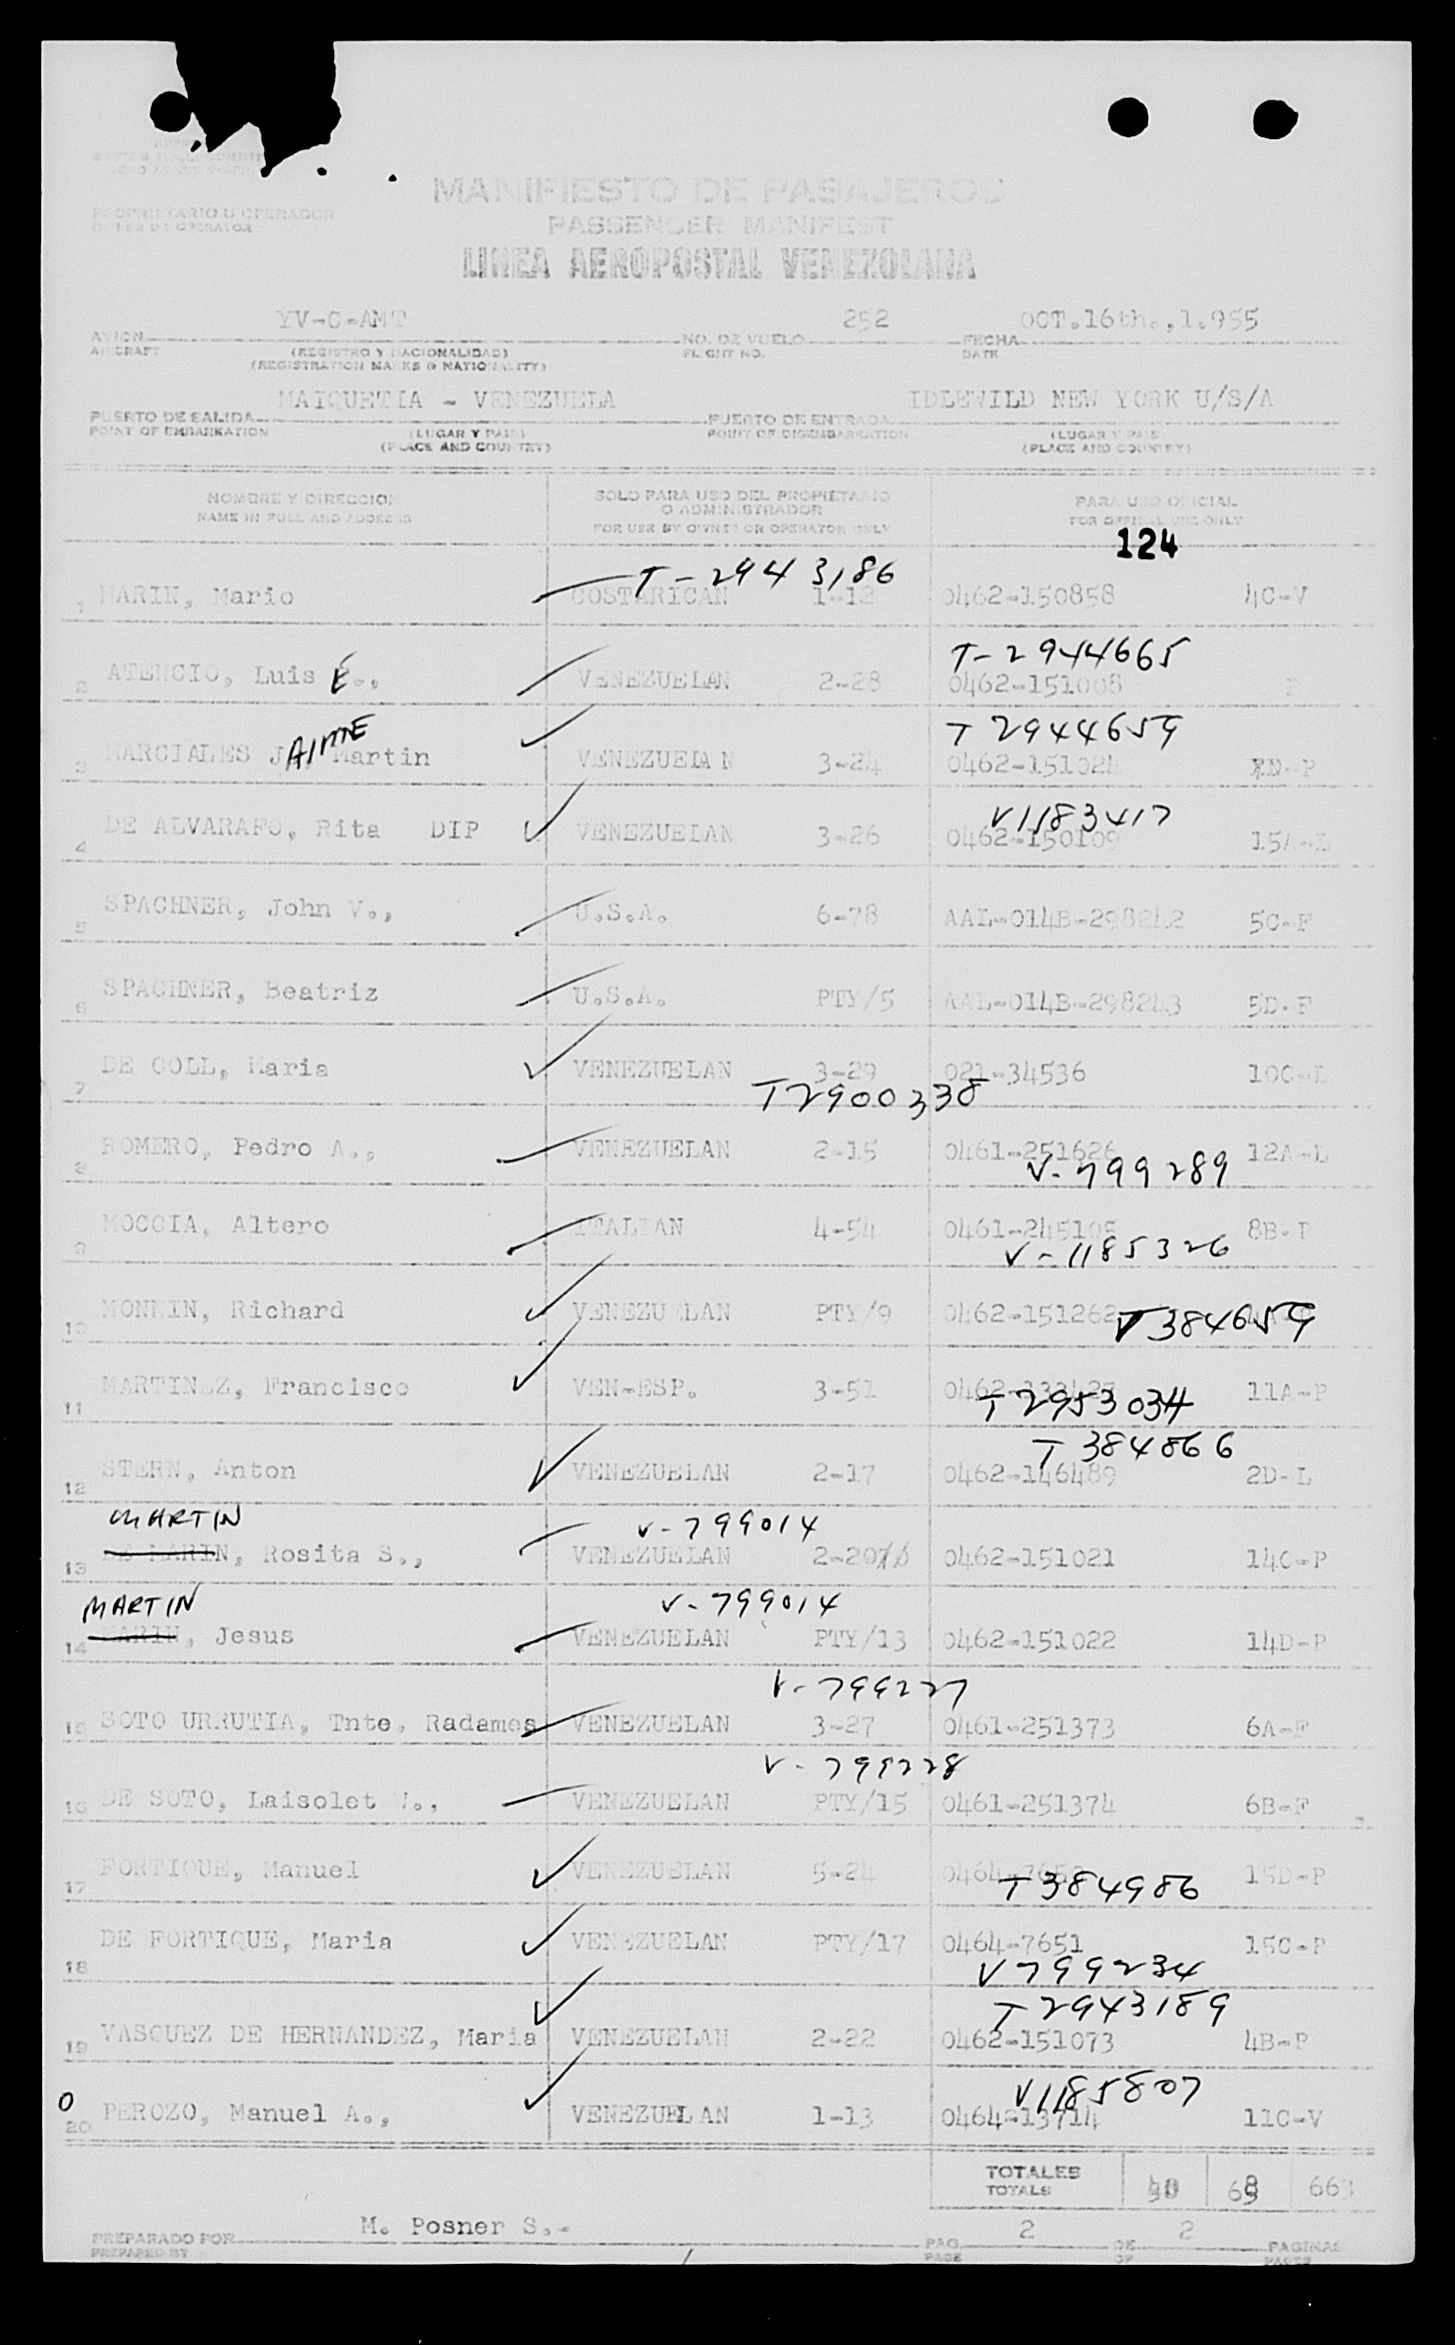 PROPRIETARIO U OPERADOR
OWNER OR OPERATOR
MANIFIESTO DE PASAJEROS
PASSENGER MANIFEST
LINEA AEROPOSTAL VENEZOLANA
YV-C-AMT 252 OCT.16th.,1.955
AVION NO. DE VUELO FECHA
AIRCRAFT (REGISTRO Y NACIONALIDAD) FLIGHT NO. DATE
(REGISTRATION MARKS & NATIONALITY)
MAIQUETIA - VENEZUELA IDLEWILD NEW YORK U/S/A
PUERTO DE SALIDA PUERTO DE ENTRADA
POINT OF EMBARKATION (LUGAR Y PAIS) POINT OF DISEMBARKATION (LUGAR Y PAIS
(PLACE AND COUNTRY) (PLACE AND COUNTRY)
NOMBRE Y DIRECCION SOLO PARA USO DEL PROPIETARIO PARA USO OFICIAL
O ADMINISTRADOR
NAME IN FULL AND ADDRESS FOR USE BY OWNER OR OPERATOR ONLY FOR OFFICIAL USE ONLY
124
T-2943186
1 MARIN, Mario COSTARICAN 1-12 0462-150858 4C-V
T-2944665
2 ATENCIO, Luis E., VENEZUELAN 2-28 0462-151008
AIME T 2944659
3 MARCIALES J Martin VENEZUELAN 3-24 0462-151024
V1183417
4 DE ALVARADO, Rita DIP VENEZUELAN 3-26 0462-150109
5 SPACHNER, John V., U.S.A. 6-78 AAL-014B-298242 5C-F
6 SPACHNER, Beatriz U.S.A. PTY/5 AAL-014B-298243 5D-F
7 DE COLL, Maria VENEZUELAN 3-29 021-34536 10C-L
T2900338
8 ROMERO, Pedro A., VENEZUELAN 2-15 0461-251626 12A-L
V-799289
9 MOCCIA, Altero ITALIAN 4-54 0461-245105 8B-P
V-1185326
10 MONNIN, Richard VENEZUELAN PTY/9 0462-151262
T384659
11 MARTINEZ, Francisco VEN-ESP. 3-51 11A-P
T 2953034
T 384866
12 STERN, Anton VENEZUELAN 2-17 0462-146489 2D-L
MARTIN V-799014
13 DE MARIN, Rosita S., VENEZUELAN 2-20 0462-151021 14C-P
MARTIN V-799014
14 MARIN, Jesus VENEZUELAN PTY/13 0462-151022 14D-P
V-799227
15 SOTO URRUTIA, Tnte, Radames VENEZUELAN 3-27 0461-251373 6A-F
V-799228
16 DE SOTO, Laisolet VENEZUELAN PTY/15 0461-251374 6B-F
17 FORTIQUE, Manuel VENEZUELAN 5-24 15D-P
T384986
18 DE FORTIQUE, Maria VENEZUELAN PTY/17 0464-7651 15C-P
V799234
T 2943189
19 VASQUEZ DE HERNANDEZ, Maria VENEZUELAN 2-22 0462-151073 4B-P
V1185807
0
20 PEROZO, Manuel A., VENEZUELAN 1-13 0464-13714 11C-V
TOTALES
TOTALS 663
M. Posner S.-
PREPARADO POR PAG. 2 DE 2 PAGINAS
PREPARED BY PAGE OF PAGES